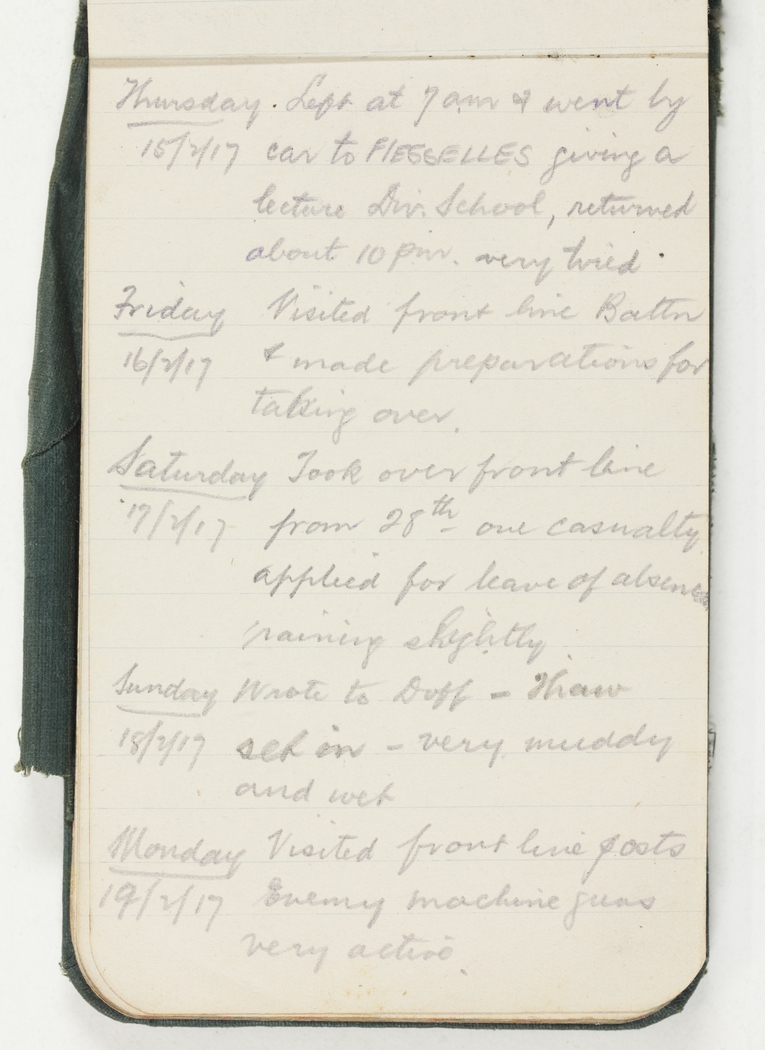 Thursday. Left at 7 am & went by
15/2/17 car to FLESSELLES giving a
lecture Div. School, returned
about 10 pm. very tired.
Friday Visited front line Battn
16/2/17 & made preparations for
taking over.
Saturday Took over front line
17/2/17 from 28th one casualty
applied for leave of absence
raining slightly
Sunday Wrote to Duff - Thaw
18/2/17 set in - very muddy
and wet
Monday Visited front line posts
19/2/17 Enemy machine guns
very active.